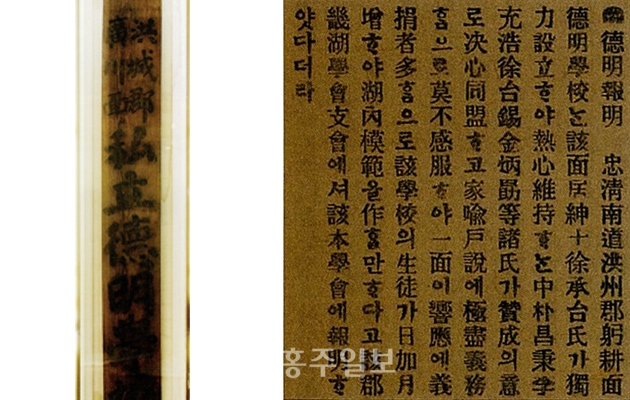 洪城郡
廣川面
私立德明學
德明報明 忠淸南道洪州郡躬耕面
德明學校는該面居紳士徐承台氏가獨
力設立ᄒᆞ야熱心維持ᄒᆞ는中朴昌秉李
充浩徐台錫金炳勗等諸氏가贊成의意
로决心同盟ᄒᆞ고家喩戶說에極盡義務
ᄒᆞᆷ으로莫不感服ᄒᆞ야一面이響應에義
捐者多ᄒᆞᆷ으로該學校의生徒가日加月
增ᄒᆞ야湖內模範을作ᄒᆞᆷ만ᄒᆞ다고該郡
畿湖學會支會에셔該本學會에報明ᄒᆞ
얏다더라
홍주일보